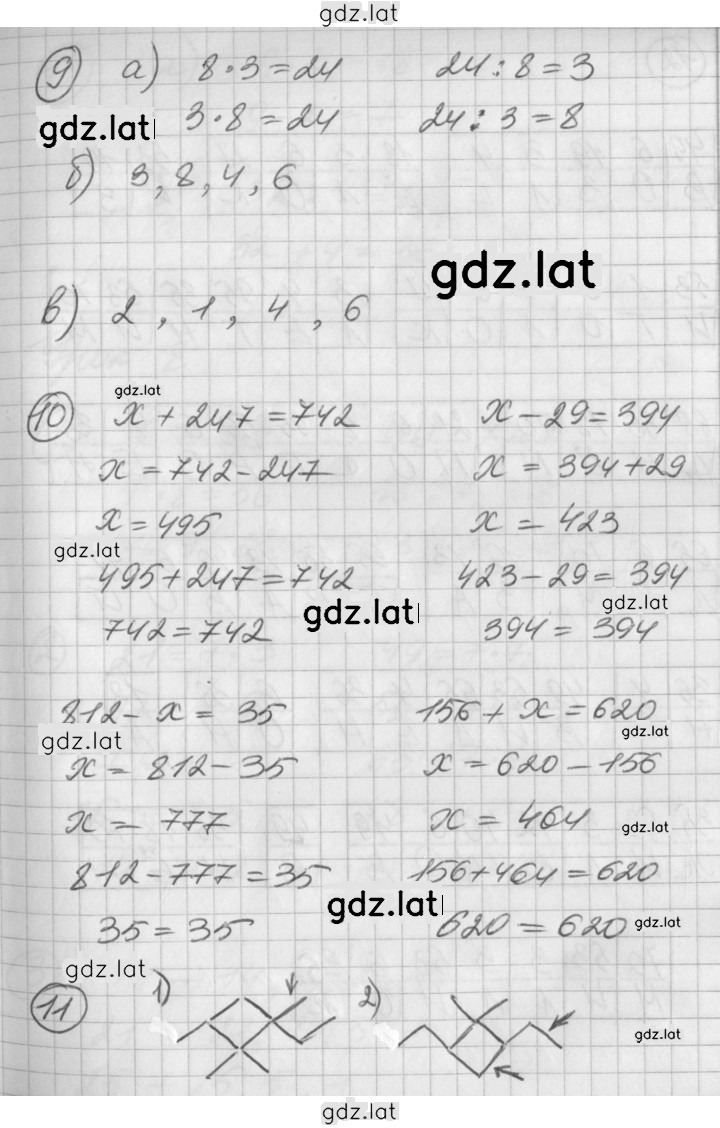 gdz.lat
9 а) 8·3=24 24:8=3
gdz.lat 3·8=24 24:3=8
б) 3, 8, 4, 6
gdz.lat
в) 2, 1, 4, 6
gdz.lat
10 x+247=742 x-29=394
x=742-247 x=394+29
x=495 x=423
gdz.lat
495+247=742 423-29=394
gdz.lat gdz.lat
742=742 394=394
812-x=35 156+x=620
gdz.lat gdz.lat
x=812-35 x=620-156
x=777 x=464 gdz.lat
812-777=35 156+464=620
gdz.lat
35=35 620=620 gdz.lat
gdz.lat
11 1) 2)
gdz.lat
gdz.lat